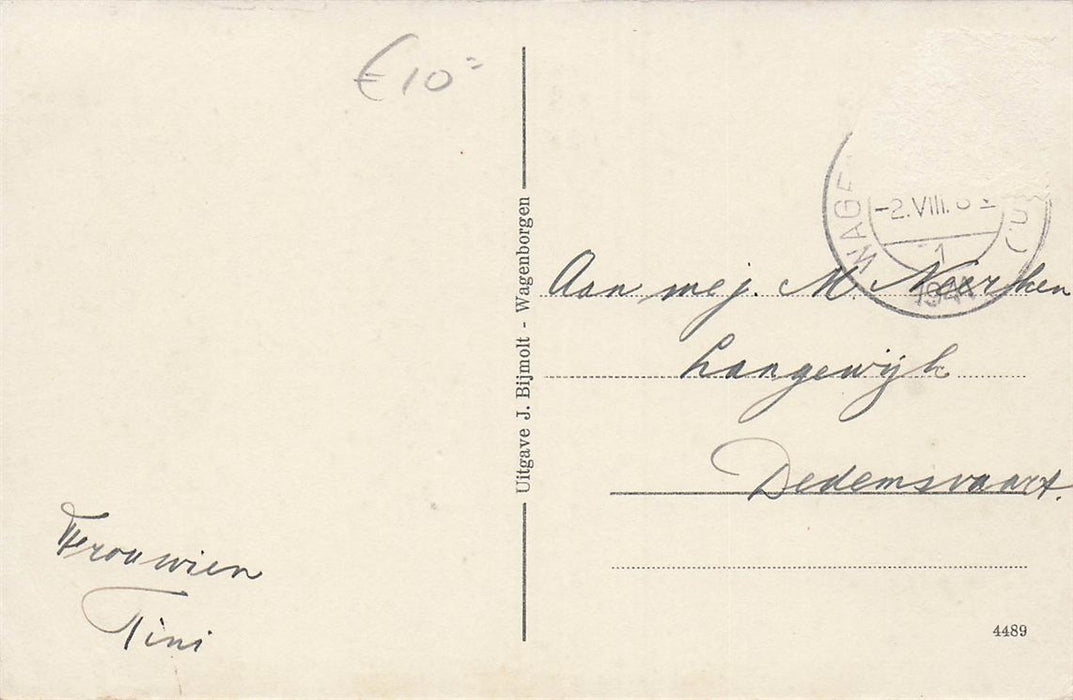 € 10 =
Uitgave J. Bijmolt - Wagenborgen
WAGE
-2.VIII.
1
194
Aan mej. M.
Langewijk
Dedemsvaart.
Frouwien
Tini
4489